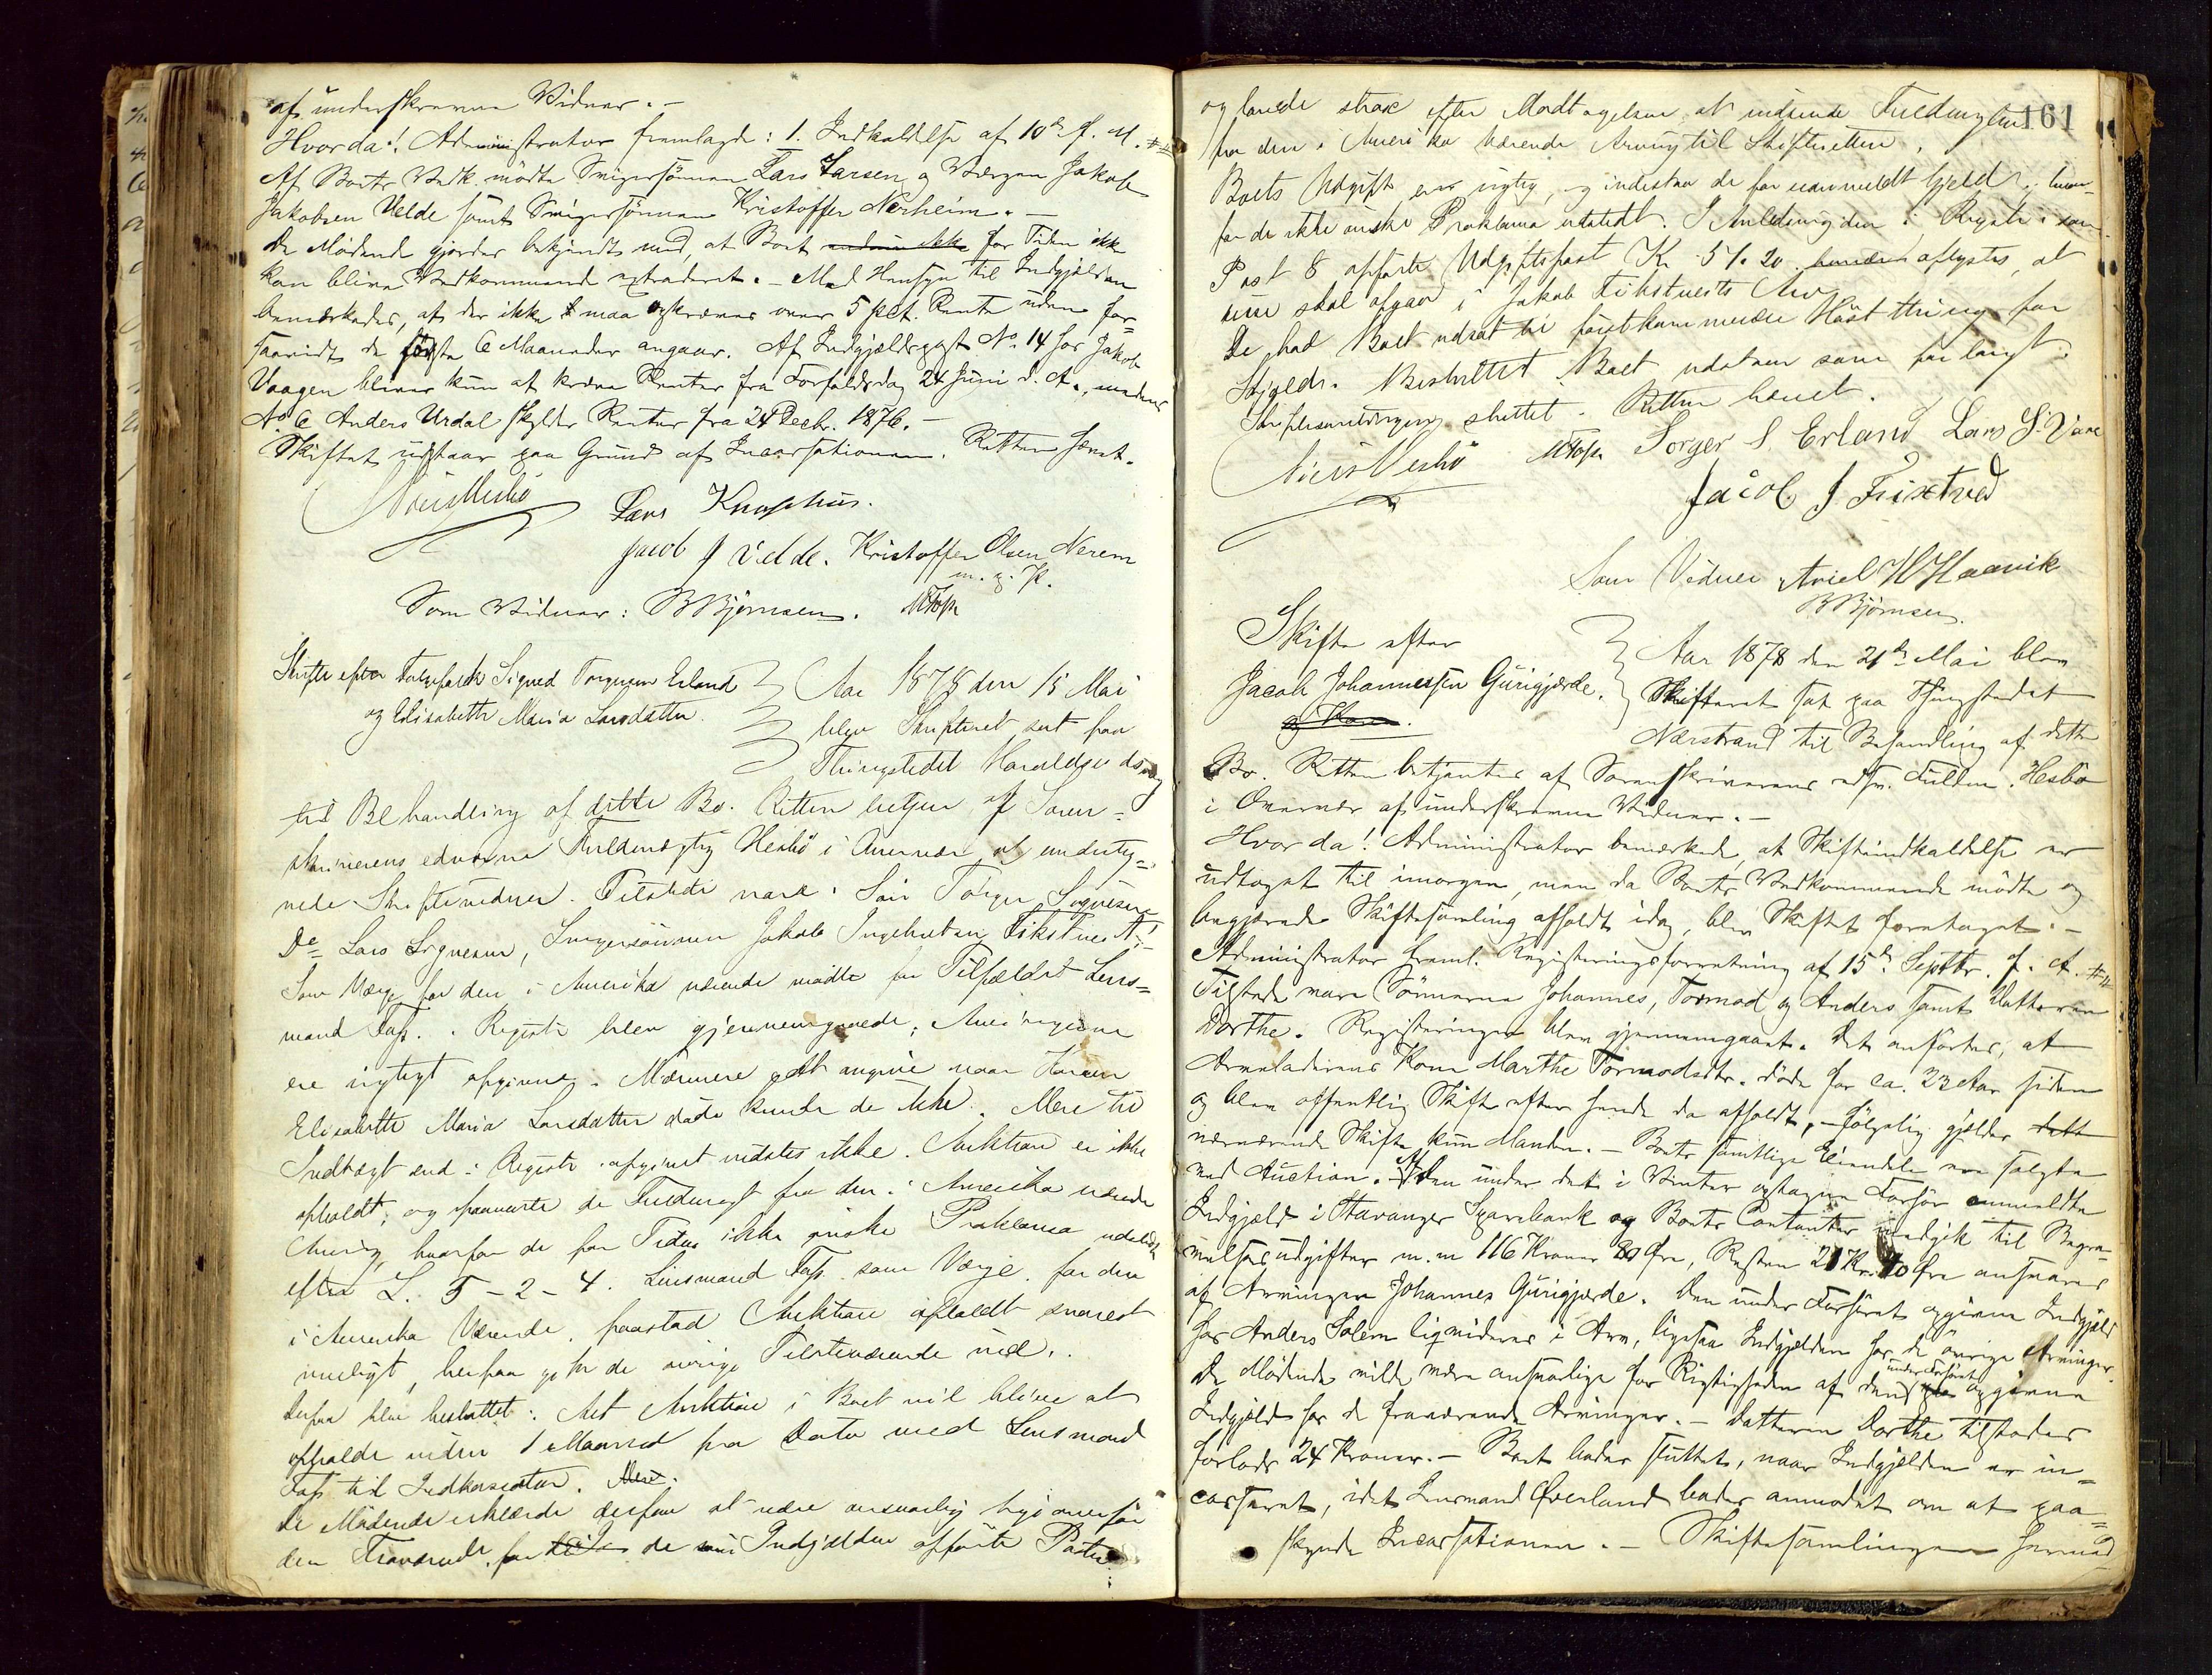 af underskrevne Vidner. –
Hvorda! Administrator fremlagde: 1. Indkaldelse af 10de f. M.
Af Boets Vedk. mødte Svigersønnen Lars Larsen og Værgen Jakob
Jakobsen Velde samt Svigersønnen Kristoffer Nerheim. –
De Mødende gjordes bekjendt med, at Boet for Tiden ikke
kan blive Vedkommende extraderet. – Med Hensyn til Indgjælden
bemærkedes, at der ikke maa opkræves over 5 pCt. Rente uden for-
saavidt de første 6 Maaneder angaar. Af Indgjældspost No. 14 hos Jakob
Vaagen bliver kun at kræve Renter fra Forfaldsdag 24 Juni d. A., medens
No 6 Anders Urdal skylder Renter fra 24 Decbr. 1876. –
Skiftet udstaar paa Grund af Incassationen. Retten hævet.
Niels Hesbø Lars Knaphus.
Jacob J Velde. Kristoffer Olsen Nerem
m. p. P.
Som Vidner: B Bjørnsen.
Skifte efter Sigved Torgersen Erland
og Elisabeth Maria Larsdatter.
Aar 1878 den 15 Mai
blev Skifteret sat paa
Thingstedet Haraldseid
til Behandling af dette Bo. Retten betjent af Soren-
skriverens edsvorne Fuldmægtig Hesbø i Overvær af underteg-
nede Skiftevidner. Tilstede vare: Søn Torger Sigvesen
Do Lars Sigvesen, Svigersønnen Jakob Ingebretsen Fikstvedt.
Som Værge for den i Amerika værende mødte for Tilfældet Lens-
mand Fass. Registr. blev gjennemgaaet; Arvingerne
ere rigtigt opgivne. Nærmere at angive naar Konen
Elisabeth Maria Larsdatter døde kunde de ikke. Mere til
Indtægt end i Registr. opgivet vidstes ikke. Auktion er ikke
afholdt, og paaventes de Fuldmagt fra den i Amerika værende
Arving, hvorfor de for Tiden ikke ønske Proklama udstedt
efter L. 5–2–4. Lensmand Fass. som Værge for den
i Amerika Værende, paastod Auktion afholdt snarest
muligt, herpaa gik de øvrige Tilstedeværende ind.
Derpaa blev besluttet: At Auktion i Boet vil blive at
afholde inden 1 Maaned fra Dato med Lensmand
Fass til Indkassator.
De Mødende erklærede derhos at være ansvarlig ligeoverfor
den Fraværende for de Indgjælden opførte Poster
161
og lovede strax efter Modtagelsen at indsende Fuldmagten
fra den i Amerika værende Arving til Skifteretten.
Boets Udgift er rigtig, og indestaa de for uanmeldt Gjeld, hvor-
for de ikke ønske Proklama udstedt. I Anledning den i Registr. som
Post 8 opførte Udgiftspost Kr 51.20 oplystes, at
denne skal afgaa i Jakob Fikstvedts Arv.
De bad Boet udsat til førstkommende Høstthing for
Skjold. Besluttet. Boet udstaar som forlangt.
Skiftesamlingen sluttet. Retten hævet.
Niels Hesbø Torger S Erland Lars S. Vaae
Jacob J. Fixtved
Som Vidner Ariel H Haavik
B Bjørnsen.
Skifte efter
Jacob Johannessen Gurigjærde.
Aar 1878 den 21de Mai blev
Skifteret sat paa Thingstedet
Nærstrand til Behandling af dette
Bo. Retten betjentes af Sorenskriverens edsv. Fuldm. Hesbø
i Overvær af underskrevne Vidner. –
Hvorda! Administrator bemærkede, at Skifteindkaldelse er
udtaget til imorgen, men da Boets Vedkommende mødte og
begjærede Skiftesamling afholdt idag, blev Skiftet foretaget. –
Administrator freml. Registreringsforretning af 15de Septbr. f. A.
Tilstede vare Sønnerne Johannes, Tormod og Anders samt Datteren
Dorthe. Registreringen blev gjennemgaaet. Det anførtes, at
Arveladerens Kone Marthe Tormodsdtr. døde for ca. 23 Aar siden
og blev offentlig Skifte efter hende da afholdt, – følgelig gjælder
nærværende Skifte kun Manden. – Boets samtlige Eiendele ere solgte
ved Auction. Af den under det i Vinter optagne Forhør anmeldte
Indgjæld i Stavanger Sparebank og Boets Contanter medgik til Begra-
velsesudgifter m. m 116 Kroner 80 Øre, Resten 21 Kr. 70 Øre ansvares
af Arvingen Johannes Gurigjærde. Den under Forhøret opgivne Indgjæld
hos Anders Solem liqvideres i Arv, ligesaa Indgjælden hos de øvrige Arvinger.
De Mødende vilde være ansvarlige for Rigtigheden af den under Forhøret opgivne
Indgjæld hos de fraværende Arvinger. – Datteren Dorthe tilstodes
forlods 24 Kroner. – Boet bedes sluttet, naar Indgjælden er in-
casseret, idet Lensmand Øverland bedes anmodet om at paa-
skynde Incassationen. – Skiftesamlingen hermed